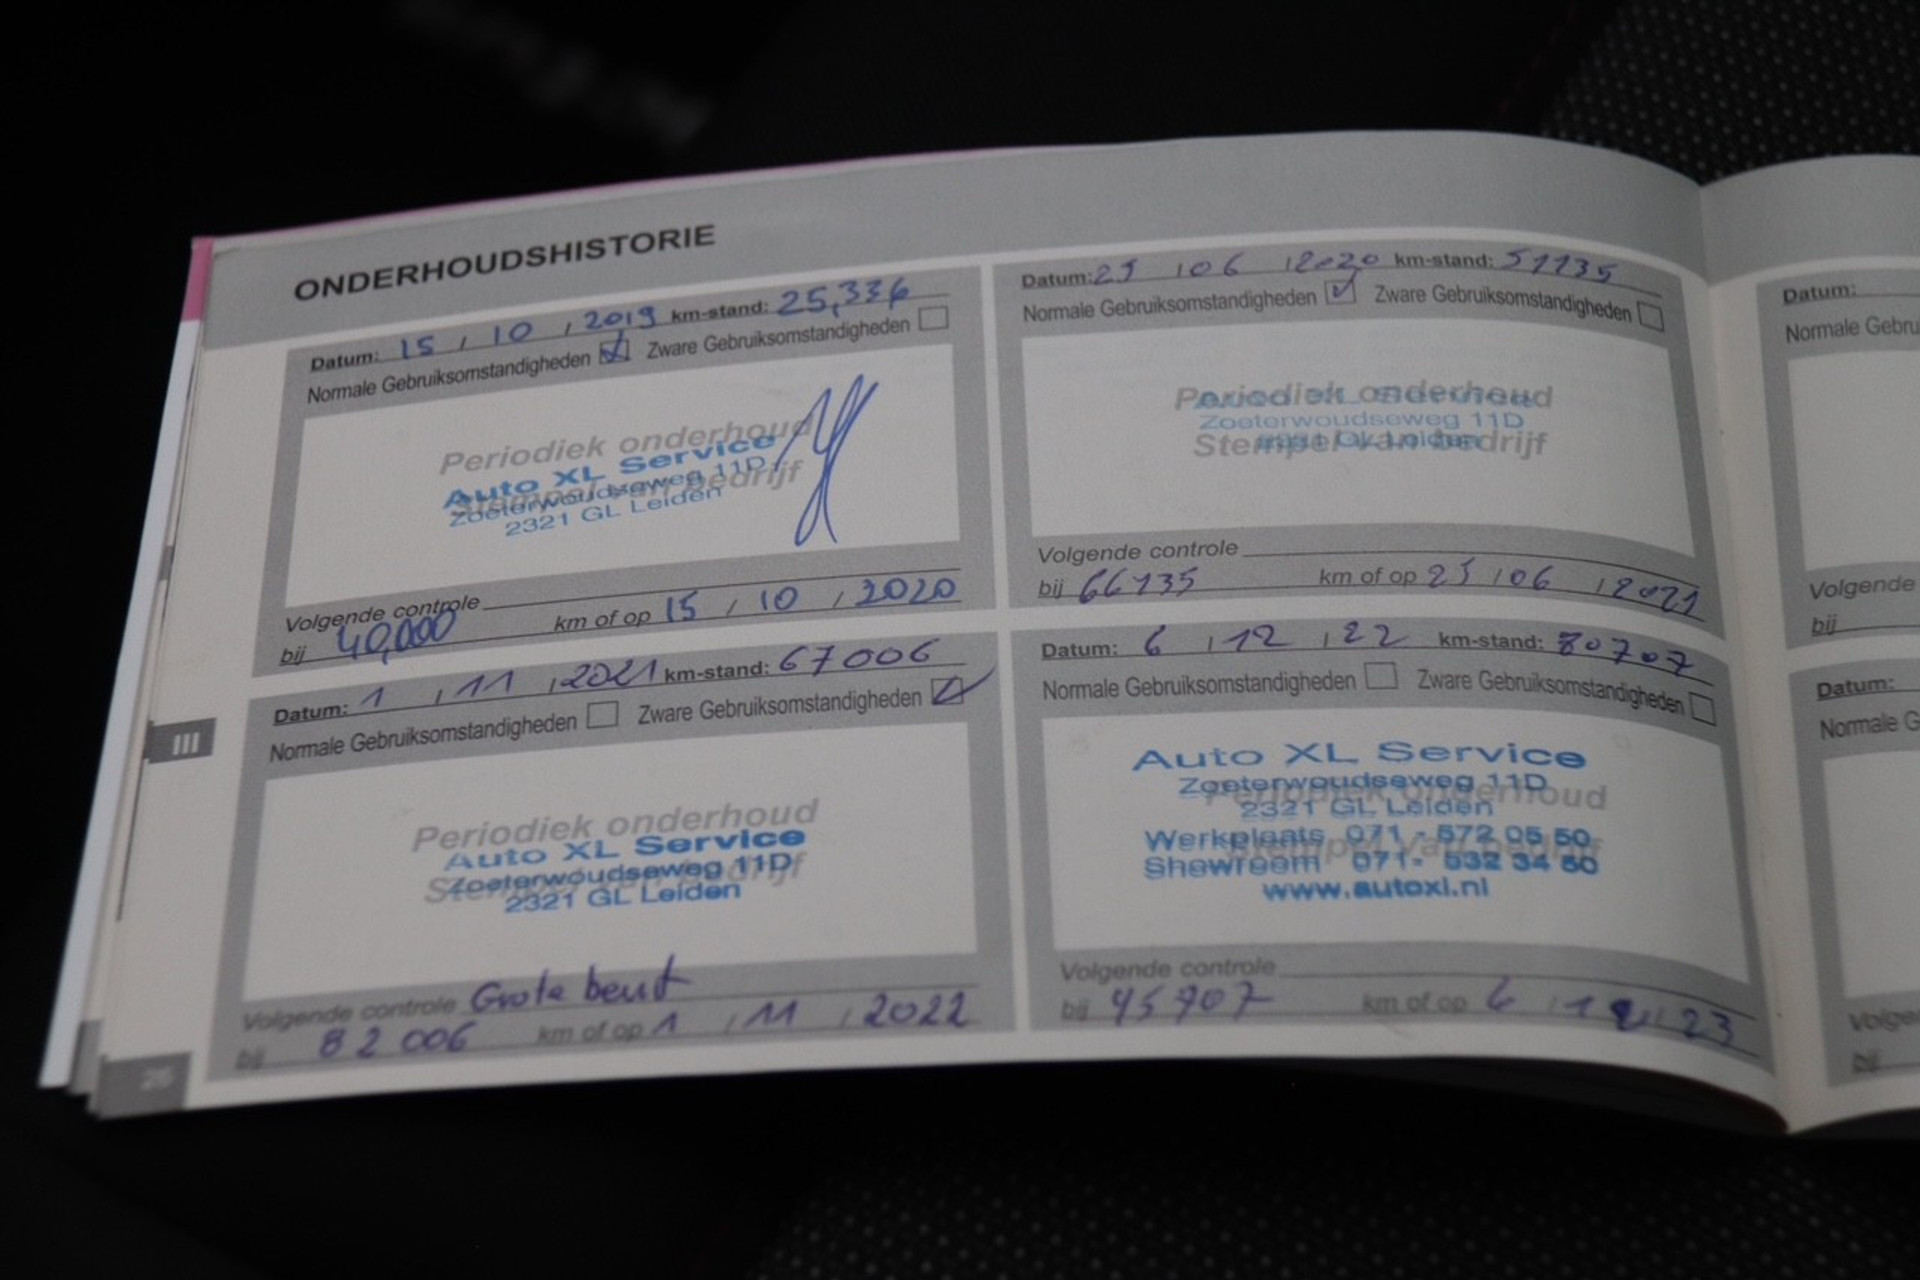 ONDERHOUDSHISTORIE
Datum: 15 / 10 / 2019 km-stand: 25,336
Normale Gebruiksomstandigheden Zware Gebruiksomstandigheden
Periodiek onderhoud
Auto XL Service
Stempel van bedrijf
Zoeterwoudseweg 11D
2321 GL Leiden
Volgende controle
bij 40,000 km of op 15 / 10 / 2020
Datum: / 06 / 2020 km-stand: 51135
Normale Gebruiksomstandigheden Zware Gebruiksomstandigheden
Periodiek onderhoud
Zoeterwoudseweg 11D
Stempel van bedrijf
Leiden
Volgende controle
bij 66135 km of op / 06 / 2021
Datum: 1 / 11 / 2021 km-stand: 67006
Normale Gebruiksomstandigheden Zware Gebruiksomstandigheden
Periodiek onderhoud
Auto XL Service
Stempel van bedrijf
Zoeterwoudseweg 11D
2321 GL Leiden
Volgende controle Grote beurt
bij 82006 km of op 1 / 11 / 2022
Datum: 6 / 12 / 22 km-stand: 80707
Normale Gebruiksomstandigheden Zware Gebruiksomstandigheden
Auto XL Service
Zoeterwoudseweg 11D
Periodiek onderhoud
2321 GL Leiden
Werkplaats 071 - 572 05 50
Stempel van bedrijf
Showroom 071 - 532 34 50
www.autoxl.nl
Volgende controle
bij 95707 km of op 6 / 12 / 23
III
26
Datum:
Normale Gebru
Volgende
bij
Datum:
Normale G
Volge
bij